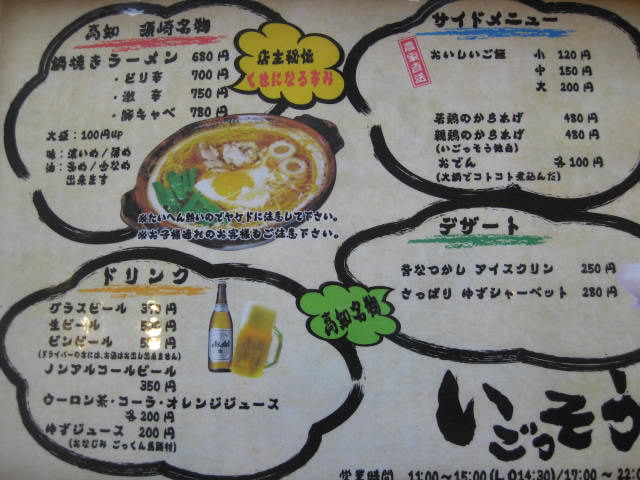 高知 須崎名物
鍋焼きラーメン 680円
・ピリ辛 700円
・激辛 750円
・豚キャベ 780円
大盛:100円up
味:濃いめ/薄め
油:多め/少なめ
出来ます
店主秘伝
くせになる辛み
※たいへん熱いのでヤケドに注意して下さい。
※お子様連れのお客様もご注意下さい。
サイドメニュー
農家直送
おいしいご飯 小 120円
中 150円
大 200円
若鶏のからあげ 480円
親鶏のからあげ 480円
(いごっそう独自)
おでん 各100円
(大鍋でコトコト煮込んだ)
デザート
昔なつかし アイスクリン 250円
さっぱり ゆずシャーベット 280円
高知名物
ドリンク
グラスビール 円
生ビール 円
ビンビール 円
(ドライバーの方には、お酒はお出し出来ません)
ノンアルコールビール
350円
ウーロン茶・コーラ・オレンジジュース
各200円
ゆずジュース 200円
(おなじみ ごっくん馬路村)
Asahi
いごっそう
営業時間 11:00〜15:00(L.O14:30)/17:00〜22:0